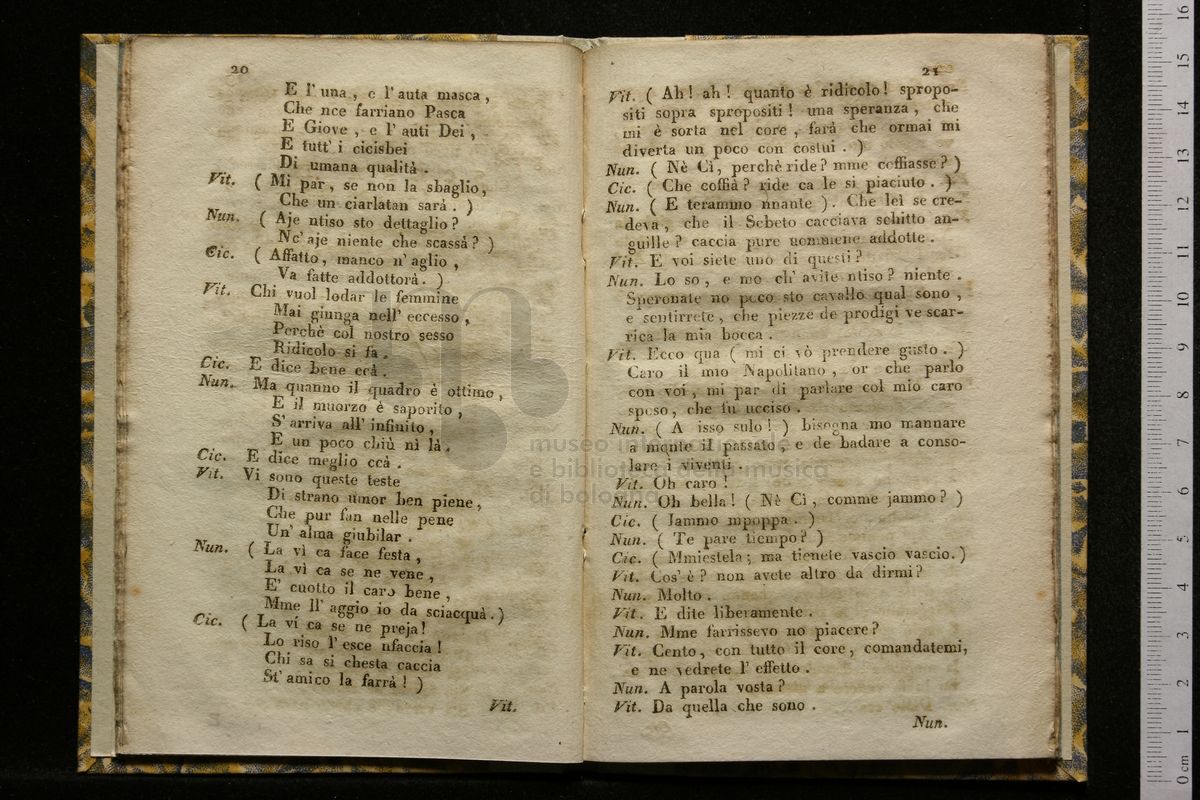 20
E l' una, e l' auta masca,
Che nce farriano Pasca
E Giove, e l' auti Dei,
E tutt' i cicisbei
Di umana qualità.
Vit. ( Mi par, se non la sbaglio,
Che un ciarlatan sarà. )
Nun. ( Aje ntiso sto dettaglio?
Nc' aje niente che scassà? )
Cic. ( Affatto, manco n' aglio,
Va fatte addottorà. )
Vit. Chi vuol lodar le femmine
Mai giunga nell' eccesso,
Perchè col nostro sesso
Ridicolo si fa.
Cic. E dice bene ccà.
Nun. Ma quanno il quadro è ottimo,
E il muorzo è saporito,
S' arriva all' infinito,
E un poco chiù nì là.
Cic. E dice meglio ccà.
Vit. Vi sono queste teste
Di strano umor ben piene,
Che pur fan nelle pene
Un' alma giubilar.
Nun. ( La vì ca face festa,
La vì ca se ne vene,
E' cuotto il caro bene,
Mme ll' aggio io da sciacquà. )
Cic. ( La ví ca se ne preja!
Lo riso l' esce nfaccia!
Chi sa si chesta caccia
St' amico la farrà! )
Vit.
21
Vit. ( Ah! ah! quanto è ridicolo! spropo-
siti sopra spropositi! una speranza, che
mi è sorta nel core, farà che ormai mi
diverta un poco con costui. )
Nun. ( Nè Cì, perchè ride? mme coffiasse? )
Cic. ( Che coffià? ride ca le si piaciuto. )
Nun. ( E terammo nnante ). Che lei se cre-
deva, che il Sebeto cacciava schitto an-
guille? caccia pure uommene addotte.
Vit. E voi siete uno di questi?
Nun. Lo so, e mo ch' avite ntiso? niente.
Speronate no poco sto cavallo qual sono,
e sentirrete, che piezze de prodigi ve scar-
rica la mia bocca.
Vit. Ecco qua ( mi ci vò prendere gusto. )
Caro il mio Napolitano, or che parlo
con voi, mi par di parlare col mio caro
sposo, che fu ucciso.
Nun. ( A isso sulo! ) bisogna mo mannare
a monte il passato, e de badare a conso-
lare i viventi.
Vit. Oh caro!
Nun. Oh bella! ( Nè Cì, comme jammo? )
Cic. ( Jammo mpoppa. )
Nun. ( Te pare tiempo? )
Cic. ( Mmiestela; ma tienete vascio vascio. )
Vit. Cos' è? non avete altro da dirmi?
Nun. Molto.
Vit. E dite liberamente.
Nun. Mme farrissevo no piacere?
Vit. Cento, con tutto il core, comandatemi,
e ne vedrete l' effetto.
Nun. A parola vosta?
Vit. Da quella che sono.
Nun.
museo internazionale
e biblioteca della musica
di bologna
0 cm 1 2 3 4 5 6 7 8 9 10 11 12 13 14 15 16